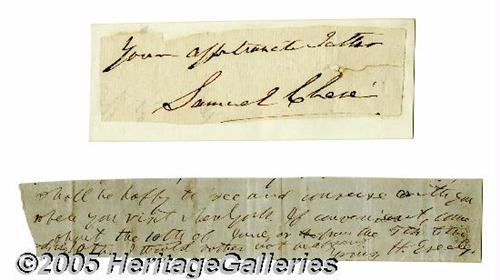 Your affectionate Father
Samuel Chase
shall be happy to see and converse with you
when you visit New York. If convenient, come
about the 10th of June, or from the 5th to the
would rather not
© 2005 HeritageGalleries.com